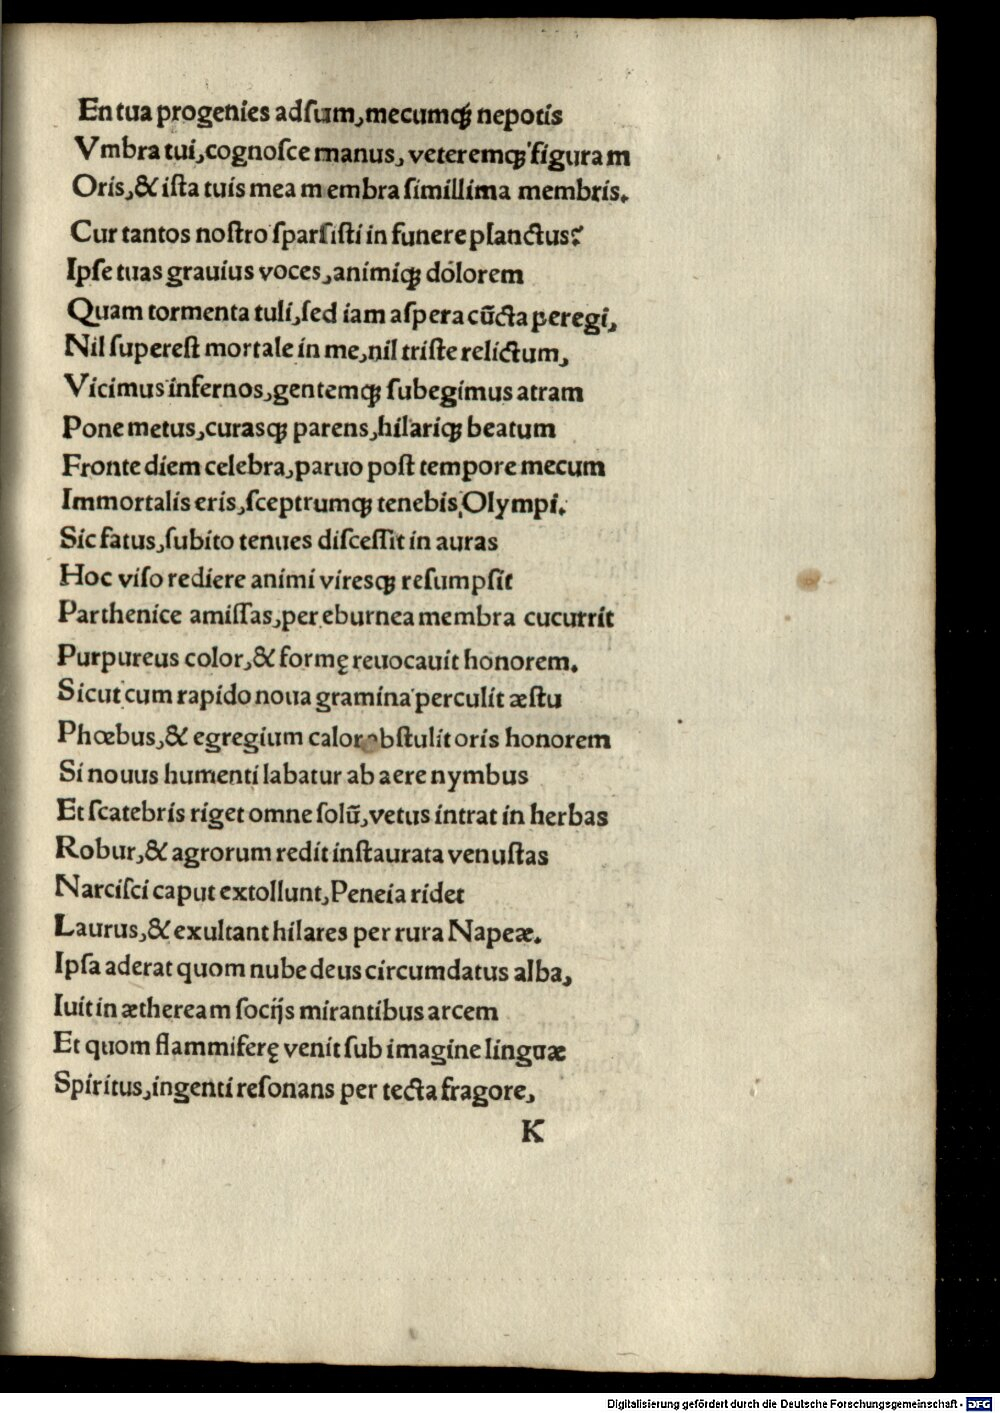 En tua progenies adſum, mecumqꝫ nepotis
Vmbra tui, cognoſce manus, veteremqꝫ figuram
Oris, & iſta tuis mea membra ſimillima membris.
Cur tantos noſtro ſparſiſti in funere planctus?
Ipſe tuas grauius voces, animiqꝫ dolorem
Quam tormenta tuli, ſed iam aſpera cūcta peregi,
Nil ſupereſt mortale in me, nil triſte relictum,
Vicimus infernos, gentemqꝫ ſubegimus atram
Pone metus, curasqꝫ parens, hilariqꝫ beatum
Fronte diem celebra, paruo poſt tempore mecum
Immortalis eris, ſceptrumqꝫ tenebis Olympi.
Sic fatus, ſubito tenues diſceſſit in auras
Hoc viſo rediere animi viresqꝫ reſumpſit
Parthenice amiſſas, per eburnea membra cucurrit
Purpureus color, & formę reuocauit honorem.
Sicut cum rapido noua gramina perculit æſtu
Phœbus, & egregium calor obſtulit oris honorem
Si nouus humenti labatur ab aere nymbus
Et ſcatebris riget omne ſolū, vetus intrat in herbas
Robur, & agrorum redit inſtaurata venuſtas
Narciſci caput extollunt, Peneia ridet
Laurus, & exultant hilares per rura Napeæ.
Ipſa aderat quom nube deus circumdatus alba,
Iuit in æthream ſocijs mirantibus arcem
Et quom flammiferę venit ſub imagine linguæ
Spiritus, ingenti reſonans per tecta fragore,
K
Digitalisierung gefördert durch die Deutsche Forschungsgemeinschaft - DFG